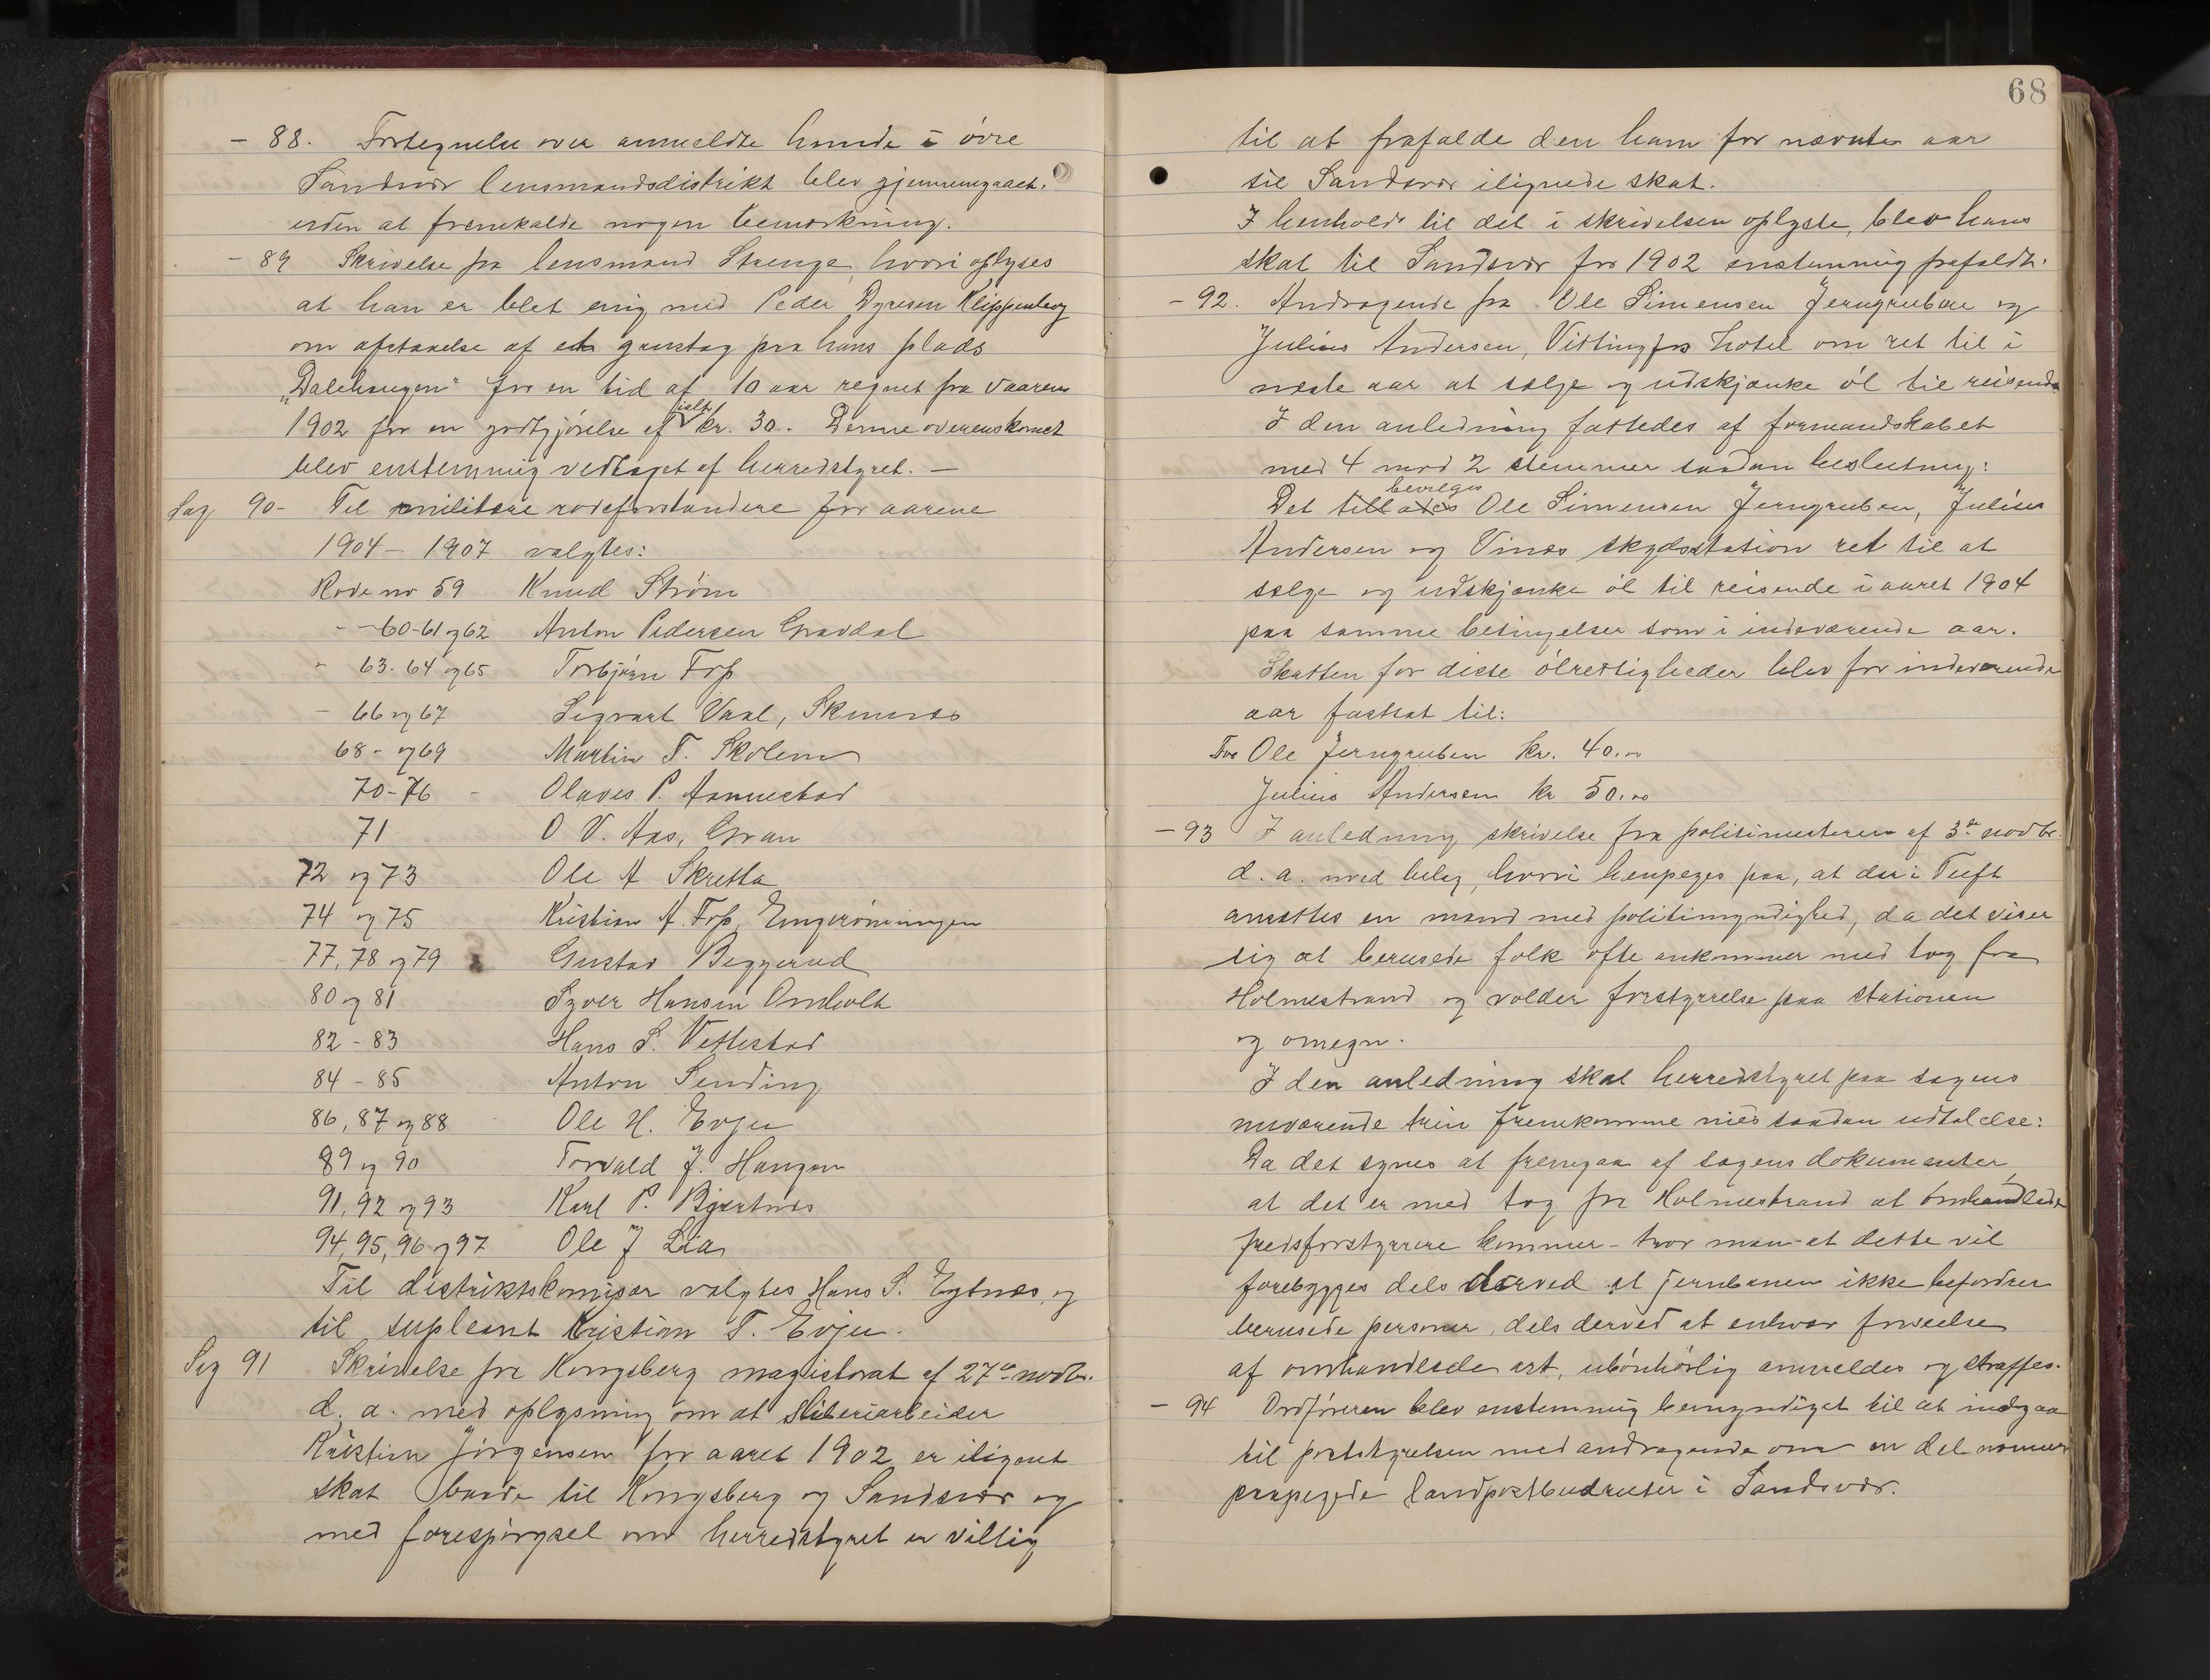 - 88. Fortegnelse over anmeldte hunde i øvre
Sandsvær lensmandsdistrikt blev gjennemgaaet.
uden at fremkalde nogen bemærkning.
- 89 Skrivelse fra lensmand Strenge, hvori oplyses
at han er blet enig med Peder Dyresen Klippenberg
om afstaaelse af et grustag fra hans plads
"Dalehaugen" for en tid af 10 aar regnet fra vaaren
1902 for en godtgjørelse af ialt kr. 30. Denne overenskomst
blev enstemmig vedtaget af herredstyret. —
Sag 90- Til militære rodeforstandere for aarene
1904 - 1907 valgtes:
Rode no 59 Knud Strøm
- - 60-61 og 62 Anton Pedersen Gravdal
" 63. 64 og 65 Torbjørn Foss
- 66 og 67 Sigvart Vaal, Skinnes
68 - og 69 Martin T. Skolem
70-76 - Olaves P. Aannestad
71 O V. Aas, Gran
72 og 73 Ole A Skretta
74 og 75 Kristian A. Foss, Engerønningen
77, 78 og 79 Gustav Beggerud
80 og 81 Syver Hansen Omholt
82 - 83 Hans S. Vettestad
84 - 85 Anton Sending
86, 87 og 88 Ole H. Evju
89 og 90 Torvald J. Haugen
91, 92 og 93 Karl P. Bjertnæs
94, 95, 96 og 97 Ole J Lia
Til distriktskomisær valgtes Hans S. Eytnæs, og
til supleant Kristian T. Evju.
Sag 91 Skrivelse fra Kongsberg magistrat af 27de novbr.
d. a. med oplysning om at sliberiarbeider
Kristian Jørgensen for aaret 1902 er ilignet
skat baade til Kongsberg og Sandsvær og
med forespørgsel om herredstyret er villig
68
til at frafalde den ham for nævnte aar
til Sandsvær ilignede skat.
I henhold til det i skrivelsen oplyste, blev hans
skat til Sandsvær for 1902 enstemmig frafaldt.
- 92. Andragende fra Ole Simensen Jerngruben og
Julius Andersen, Vittingfos hotel om ret til i
næste aar at sælge og udskjænke øl til reisende
I den anledning fattedes af formandskabet
med 4 mod 2 stemmer saadan beslutning:
bevilges
Det tillades Ole Simensen Jerngruben, Julius
Andersen og Vinæs skydsstation ret til at
sælge og udskjænke øl til reisende i aaret 1904
paa samme betingelser som i indeværende aar.
Skatten for disse ølrettigheder blev for indeværende
aar fastsat til:
For Ole Jerngruben kr. 40.00
Julius Andersen kr 50.00
- 93 I anledning skrivelse fra politimesteren af 3de novbr.
d. a. med bilag, hvori henpeges paa, at der i Tuft
ansættes en mand med politimyndighed, da det viser
sig at berusede folk ofte ankommer med tog fra
Holmestrand og volder forstyrrelse paa stationen
og omegn.
I den anledning skal herredstyret paa sagens
nuværende trin fremkomme med saadan udtalelse:
Da det synes at fremgaa af sagens dokumenter,
at det er med tog fra Holmestrand at omhandlede
fredsforstyrrere kommer - tror man at dette vil
forebygges dels derved at jernbanen ikke befordrer
berusede personer, dels derved at enhver forseelse
af omhandlede art, ubønhørlig anmeldes og straffes.
- 94 Ordføreren blev enstemmig bemyndiget til at indgaa
til poststyrelsen med andragende om en del nærmere
paapegede landpostbudruter i Sandsvær.